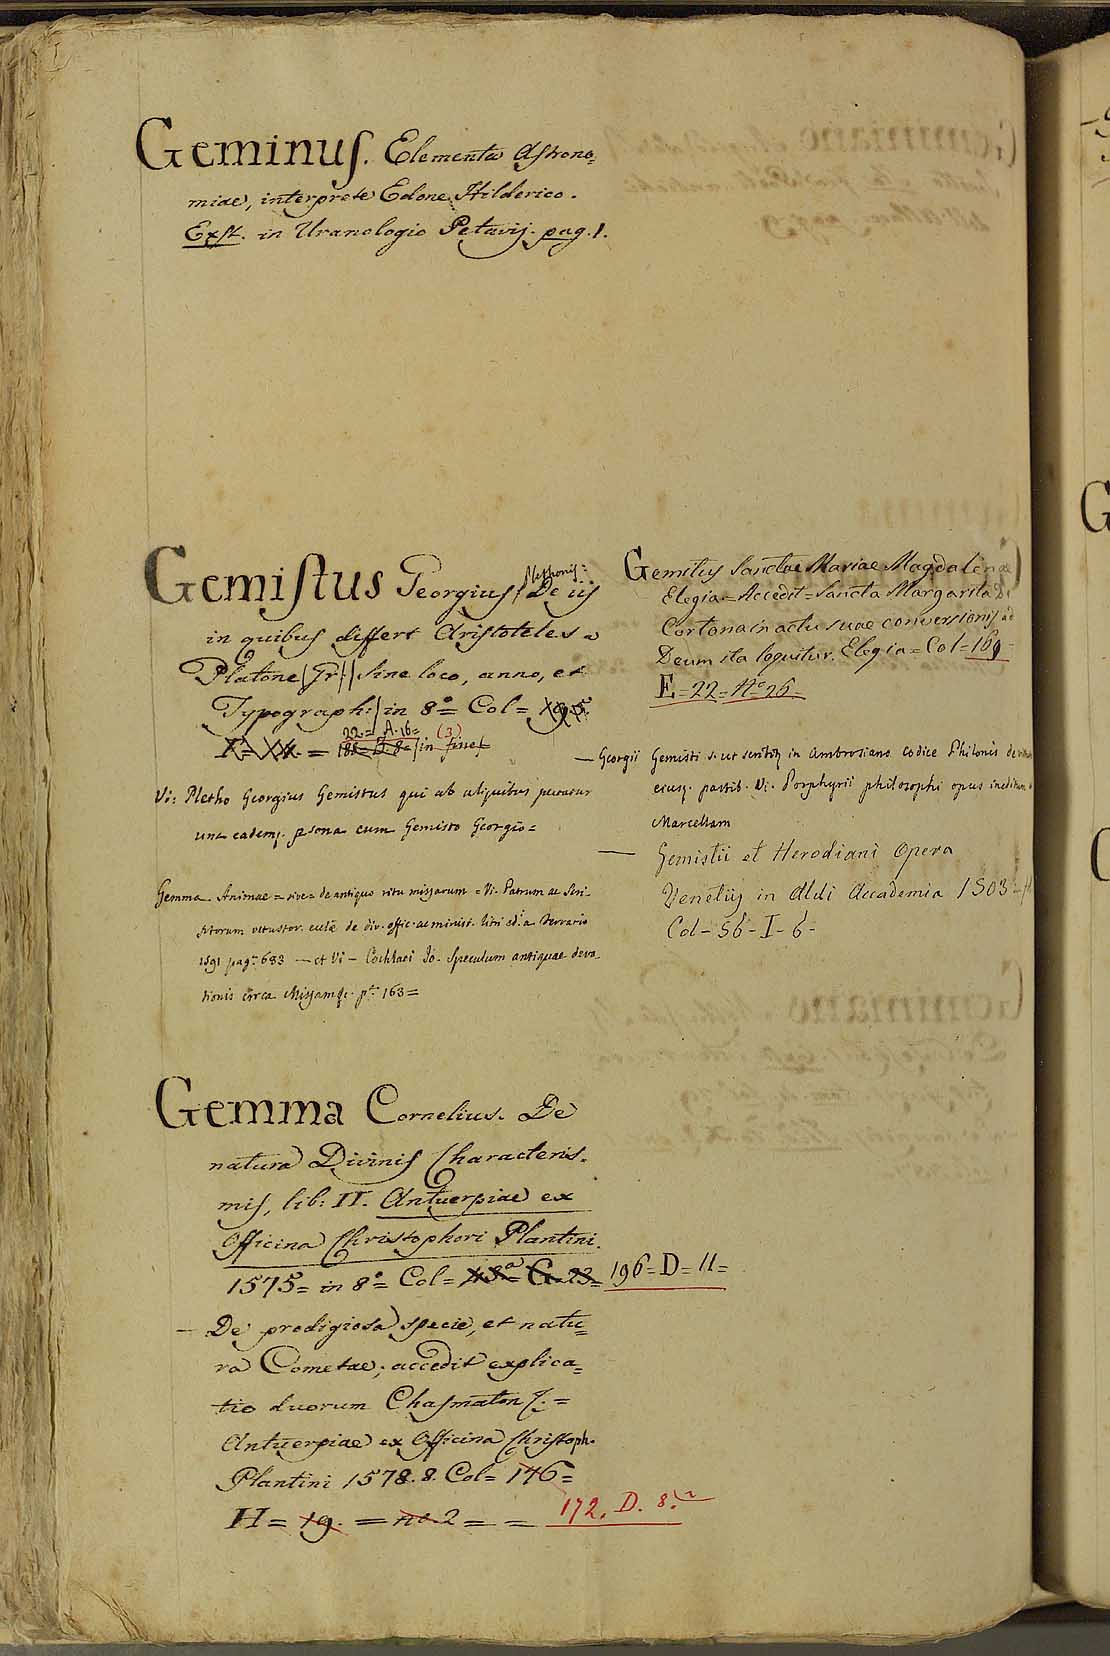 Geminus. Elementa Astrono=
miae, interprete Edone Hilderico.
Exst. in Uranologio Petavij. pag. 1.
Gemistus Georgius Plethonis: De iis
in quibus differt Aristoteles a
Platone (Gr.) sine loco, anno, et
Typograph: in 8º Col=
22.= A. 16= (3)
188= D. 8= in fine
Vi: Pletho Georgius Gemistus qui ab aliquibus putatur
una eademq. psona cum Gemisto Georgio=
Gemma Animae = sive de antiquo ritu missarum = Vi. Patrum ac Scri-
ptorum vetustor. eccle de div. offic. ac minist. libri ed. a Ferrario
1591 pag. 683 — et Vi — Cochlaei Jo. Speculum antiquae devo-
tionis circa Missam &c. p. 163=
Gemma Cornelius. De
natura Divinis Characteris-
mis, lib: II. Antuerpiae ex
Officina Christophori Plantini.
1575= in 8º= Col= 43ª= G. 23= 196= D= 11=
— De prodigiosa specie, et natu=
ra Cometae; accedit explica=
tio duorum Chasmaton &.=
Antuerpiae ex Officina Christoph.
Plantini 1578. 8. Col= 146=
H= 19. = no. 2 = = 172. D. 8.
Gemitus Sanctae Mariae Magdalenae
Elegia= Accedit= Sancta Margarita De
Cortona in actu suae conversionis ad
Deum ita loquitur. Elegia= Col= 169=
E= 22= Nº 26=
— Georgii Gemisti in Ambrosiano codice Philonis de
eiusq. partib. Vi. Porphyrii philosophi opus ineditum
Marcellam
— Gemistii et Herodiani Opera
Venetiis in Aldi Accademia 1503
Col- 56- I- 6-